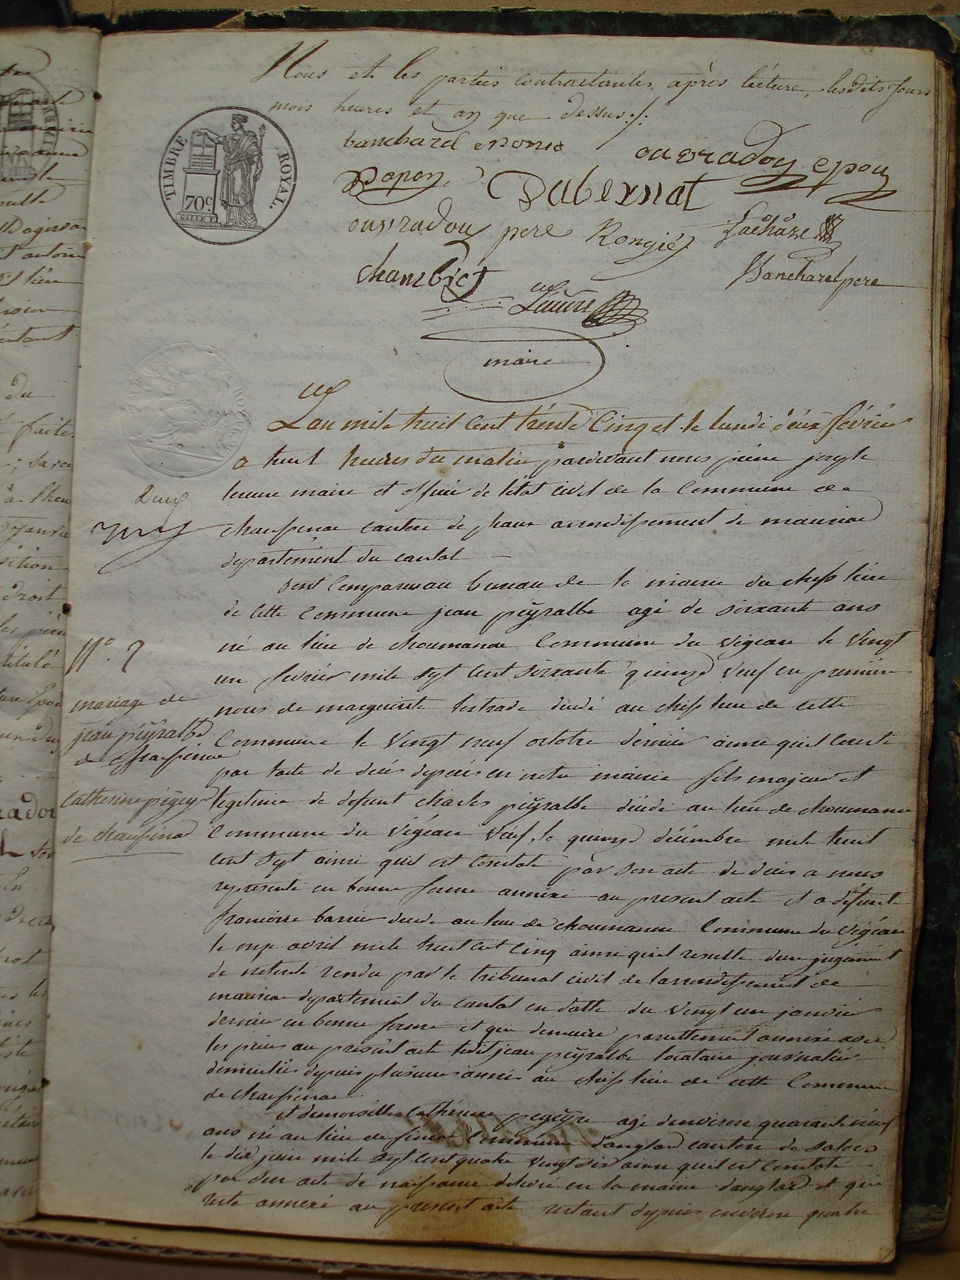 Nous et les parties contractantes, après lecture, lesdits jours
mois heures et an que dessus ./.
TIMBRE ROYAL.
70c
banchard epouse ouvradou epoux
Papon Tabernat
ouvradou pere Rongier Lachaze
chambret Bancharel pere
maire
L'an mile huit cent trente Cinq et le lundi deux février
a huit heures du matin pardevant nous
maire et officier de l'état civil de la Commune de
chaussenac canton de pleaux arrondissement de mauriac
departement du cantal
sont Comparus au bureau de la mairie du chef lieu
de cette Commune jean peÿralbe agé de soixante ans
né au lieu de choumanou Commune du vigean le vingt
un février mile sept cent soixante quinze veuf en premiere
nous de marguerite décédé au chef lieu de cette
Commune le vingt neuf octobre dernier ainsi quil Conste
par l'acte de décés deposé en notre mairie fils majeur et
legitime de defunt charles peÿralbe décédé au lieu de choumanou
Commune du vigean veuf, le quinze décembre mile huit
cent sept ainsi quil est Constaté par son acte de décés a nous
representé en bonne forme annéxé au present acte et a défunte
francoise barrier décédé au lieu de choumanou Commune du vigean
le onze avril mile huit cent Cinq ainsi quil resulte dun jugement
de notorieté rendu par le tribunal civil de larrondissement de
mauriac departement du cantal en datte du vingt un janvier
dernier en bonne forme et qui demeure pareillement annéxé avec
les pieces au présent acte ledit jean peÿralbe locataire journalier
domicilié depuis plusieurs années au chef lieu de cette Commune
de chaussenac
et demoiselle Catherine pegeÿre agé denviron quarante neuf
ans né au lieu de Commune danglard canton de salers
le dix juin mile sept cent quatre vingt six ainsi quil est Constaté
par son acte de naissance délivré en la mairie danglard et qui
reste annéxé au present acte restant depuis environ quatre
N°. 2
mariage de
jean peÿralbe
de chaussenac
Catherine pegeyre
de chaussenac